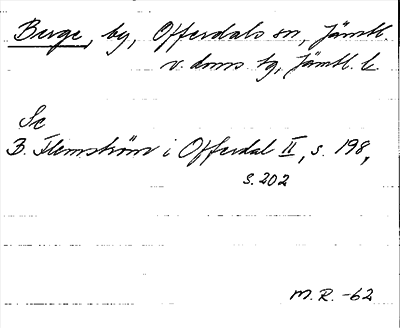 Berge, by, Offerdals sn, Jämtl.
v. doms. tg, Jämtl. l.
Se
B. Flemström i Offerdal II, s. 198,
s. 202
M.R. -62